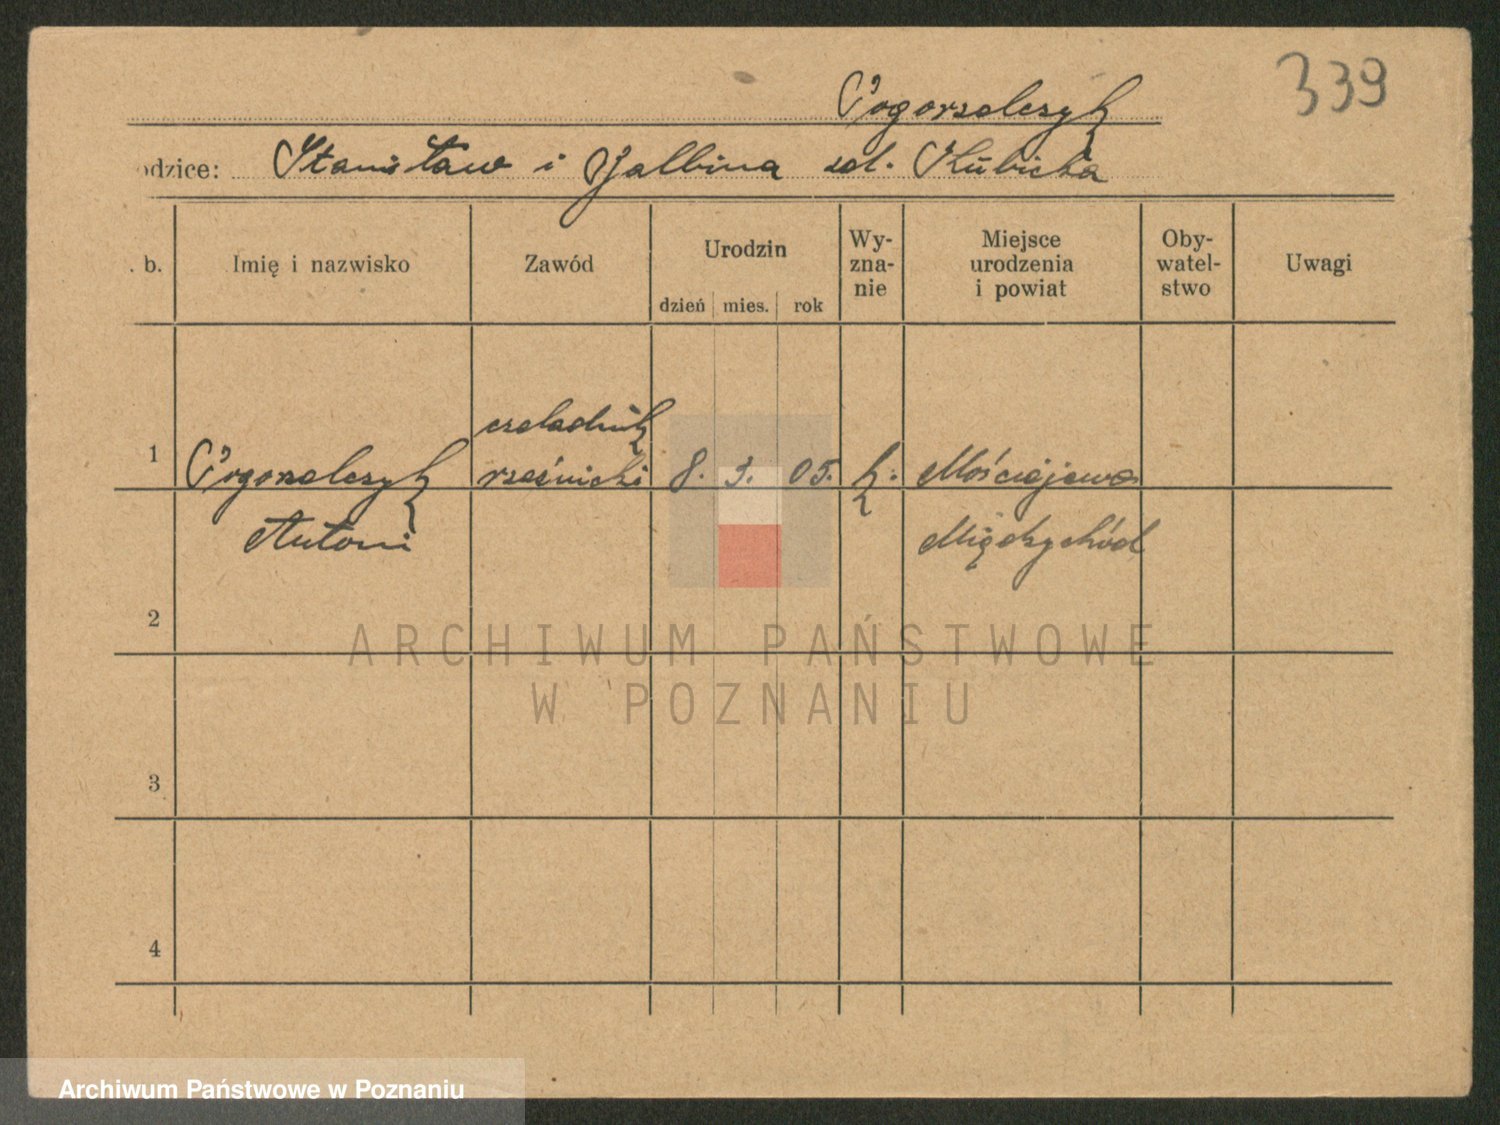 339
Pogorzelczyk
odzice: Stanisław i Balbina zd. Kubicka
. b. Imię i nazwisko Zawód Urodzin dzień mies. rok Wy-zna-nie Miejsce urodzenia i powiat Oby-watel-stwo Uwagi
czeladnik
1 Pogorzelczyk rzeźnicki 8. 3. 05. k. Mościejewo
Antoni Międzychód
2
ARCHIWUM PAŃSTWOWE
W POZNANIU
3
4
Archiwum Państwowe w Poznaniu